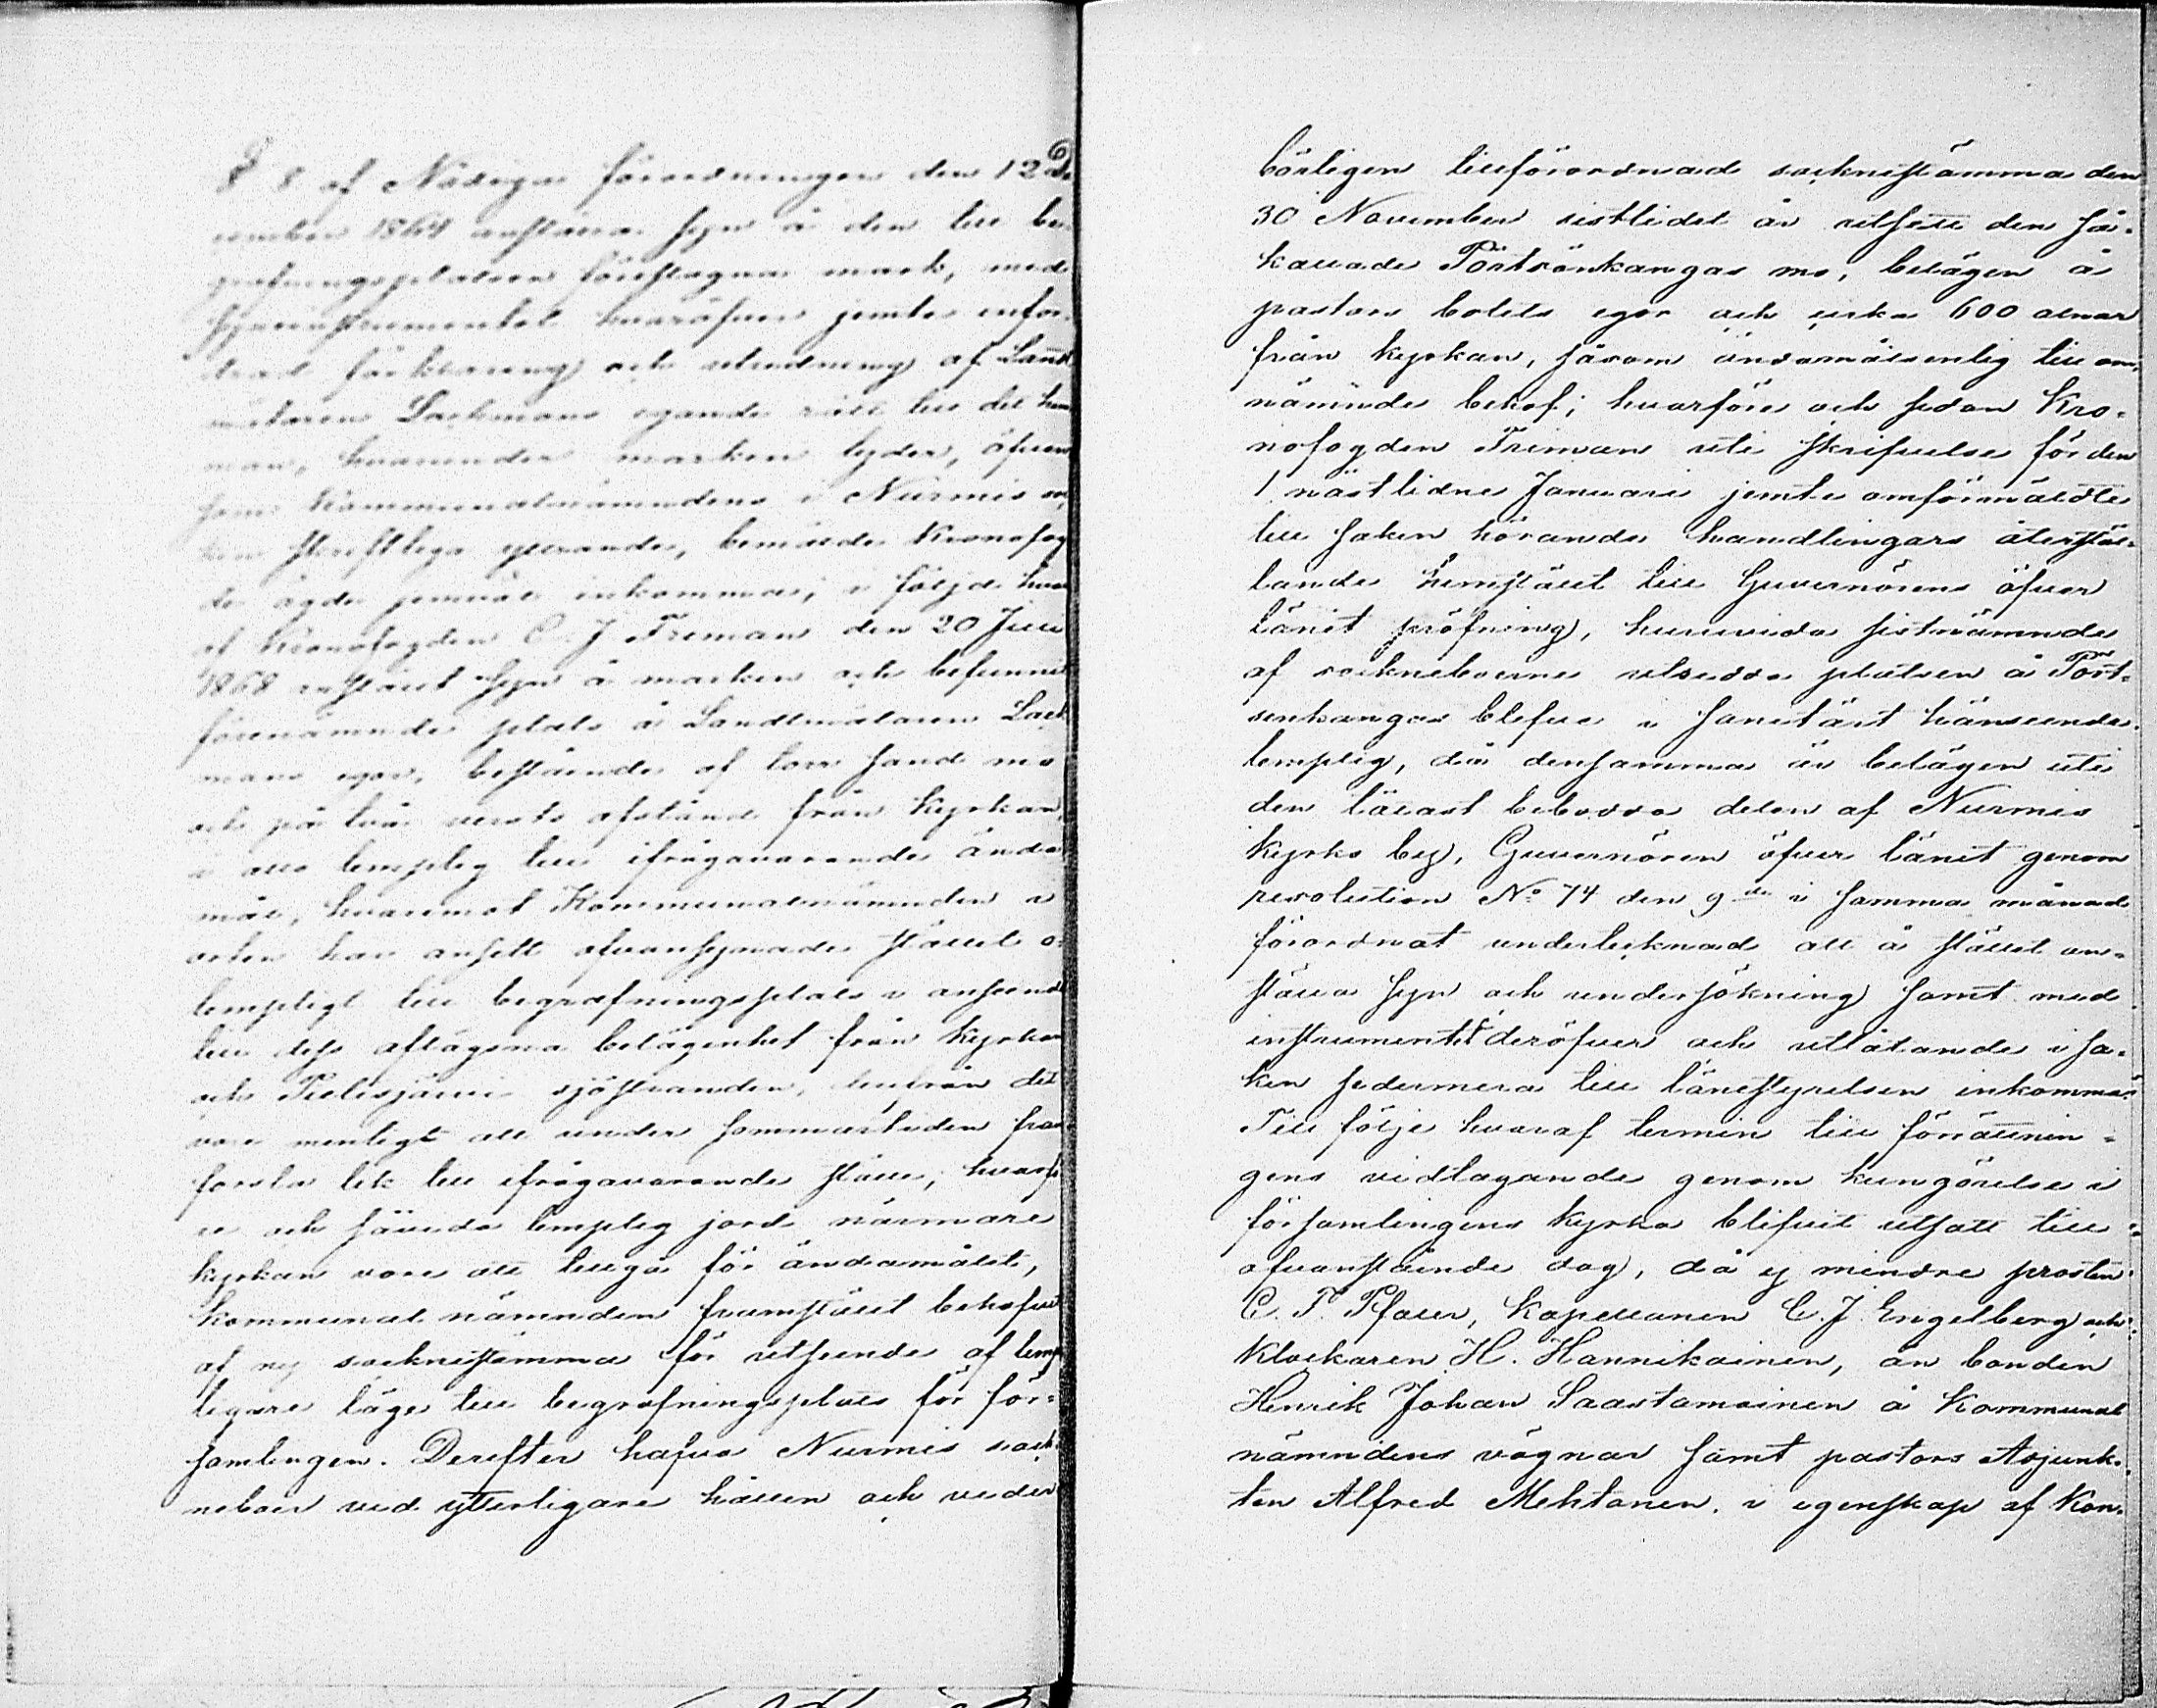 § 8 af Nådiga förordningen den 12 De
cember 1864 anställa syn å den till be
grafningsplatsen föreslagna mark, med
syneinstrumentet hvaröfver jemte infor
drad förklaring och utredning af Landt
mätaren Lackmans egande rätt till det hem
man, hvarunder marken lyder, äfven
som Kommunalnämndens i Nurmis soc
ken skriftliga yttrande, bemälde Kronofog
de ägde jemväl inkomma; i följd hvar
af Kronofogden C. J. Friman den 20 Juli
1868 anstält syn å marken och befunnit
förenämnde plats å Landtmätaren Lack
mans egor, bestående af torr sand mo
och på två versts afstånd från kyrkan,
i allo lemplig till ifrågavarande ända
mål, hvaremot Kommunalnämnden i
orten har ansett ofvansynade stället o-
lempligt till begrafningsplats i anseende
till dess aflägsna belägenhet från kyrkan
och Pielisjärvi sjöstranden, hvarifrån det
vore menligt att under sommartiden fram
forsla lik till ifrågavarande ställe, hvarfö
re och såvida lemplig jord närmare
kyrkan vore att tillgå för ändamålet,
kommunal nämnden framstält behofvet
af ny sockenstämma för utseende af lemp
ligare läge till begrafningsplats för för-
samlingen. Derefter hafva Nurmis sock
neboer vid ytterligare hållen och veder
börligen tillförordnad socknestämma den
30 November sistlidet år utsett den så-
kallade Pörtsönkangas mo, belägen å
pastors bolets egor och cirka 600 alnar
från kyrkan, såsom ändamålsenlig till om-
nämnde behof; hvarföre och sedan Kro-
nofogden Friman uti skrifvelse för den
1 nästlidne Januari jemte omförmäldte
till saken hörande handlingars återstäl-
lande hemstält till Guvernörens öfver
länet pröfning, huruvida sistnämnde
af sockneboerne utsedda platsen å Pört-
senkangas blefve i sanitärt hänseende
lemplig, då densamma är belägen uti
den tätast bebodda delen af Nurmis
kyrko by, Guvernören öfver länet genom
resolution No 74 den 9de i samma månad
förordnat undertecknad att å stället an-
ställa syn och undersökning samt med
instrumentet deröfver och utlåtande i sa-
ken sedermera till länestyrelsen inkomma.
Till följe hvaraf termin till förrättnin-
gens vidtagande genom kungörelse i
församlingens kyrka blifvit utsatt till
ofvanstående dag, då ej mindre prosten
C. T. Pfaler, kapellanen C. J. Engelberg och
klockaren H. Hannikainen, än bonden
Henrik Johan Saastamoinen å Kommunal
nämndens vägnar samt pastors Adjunk-
ten Alfred Mehtonen i egenskap af Kon-